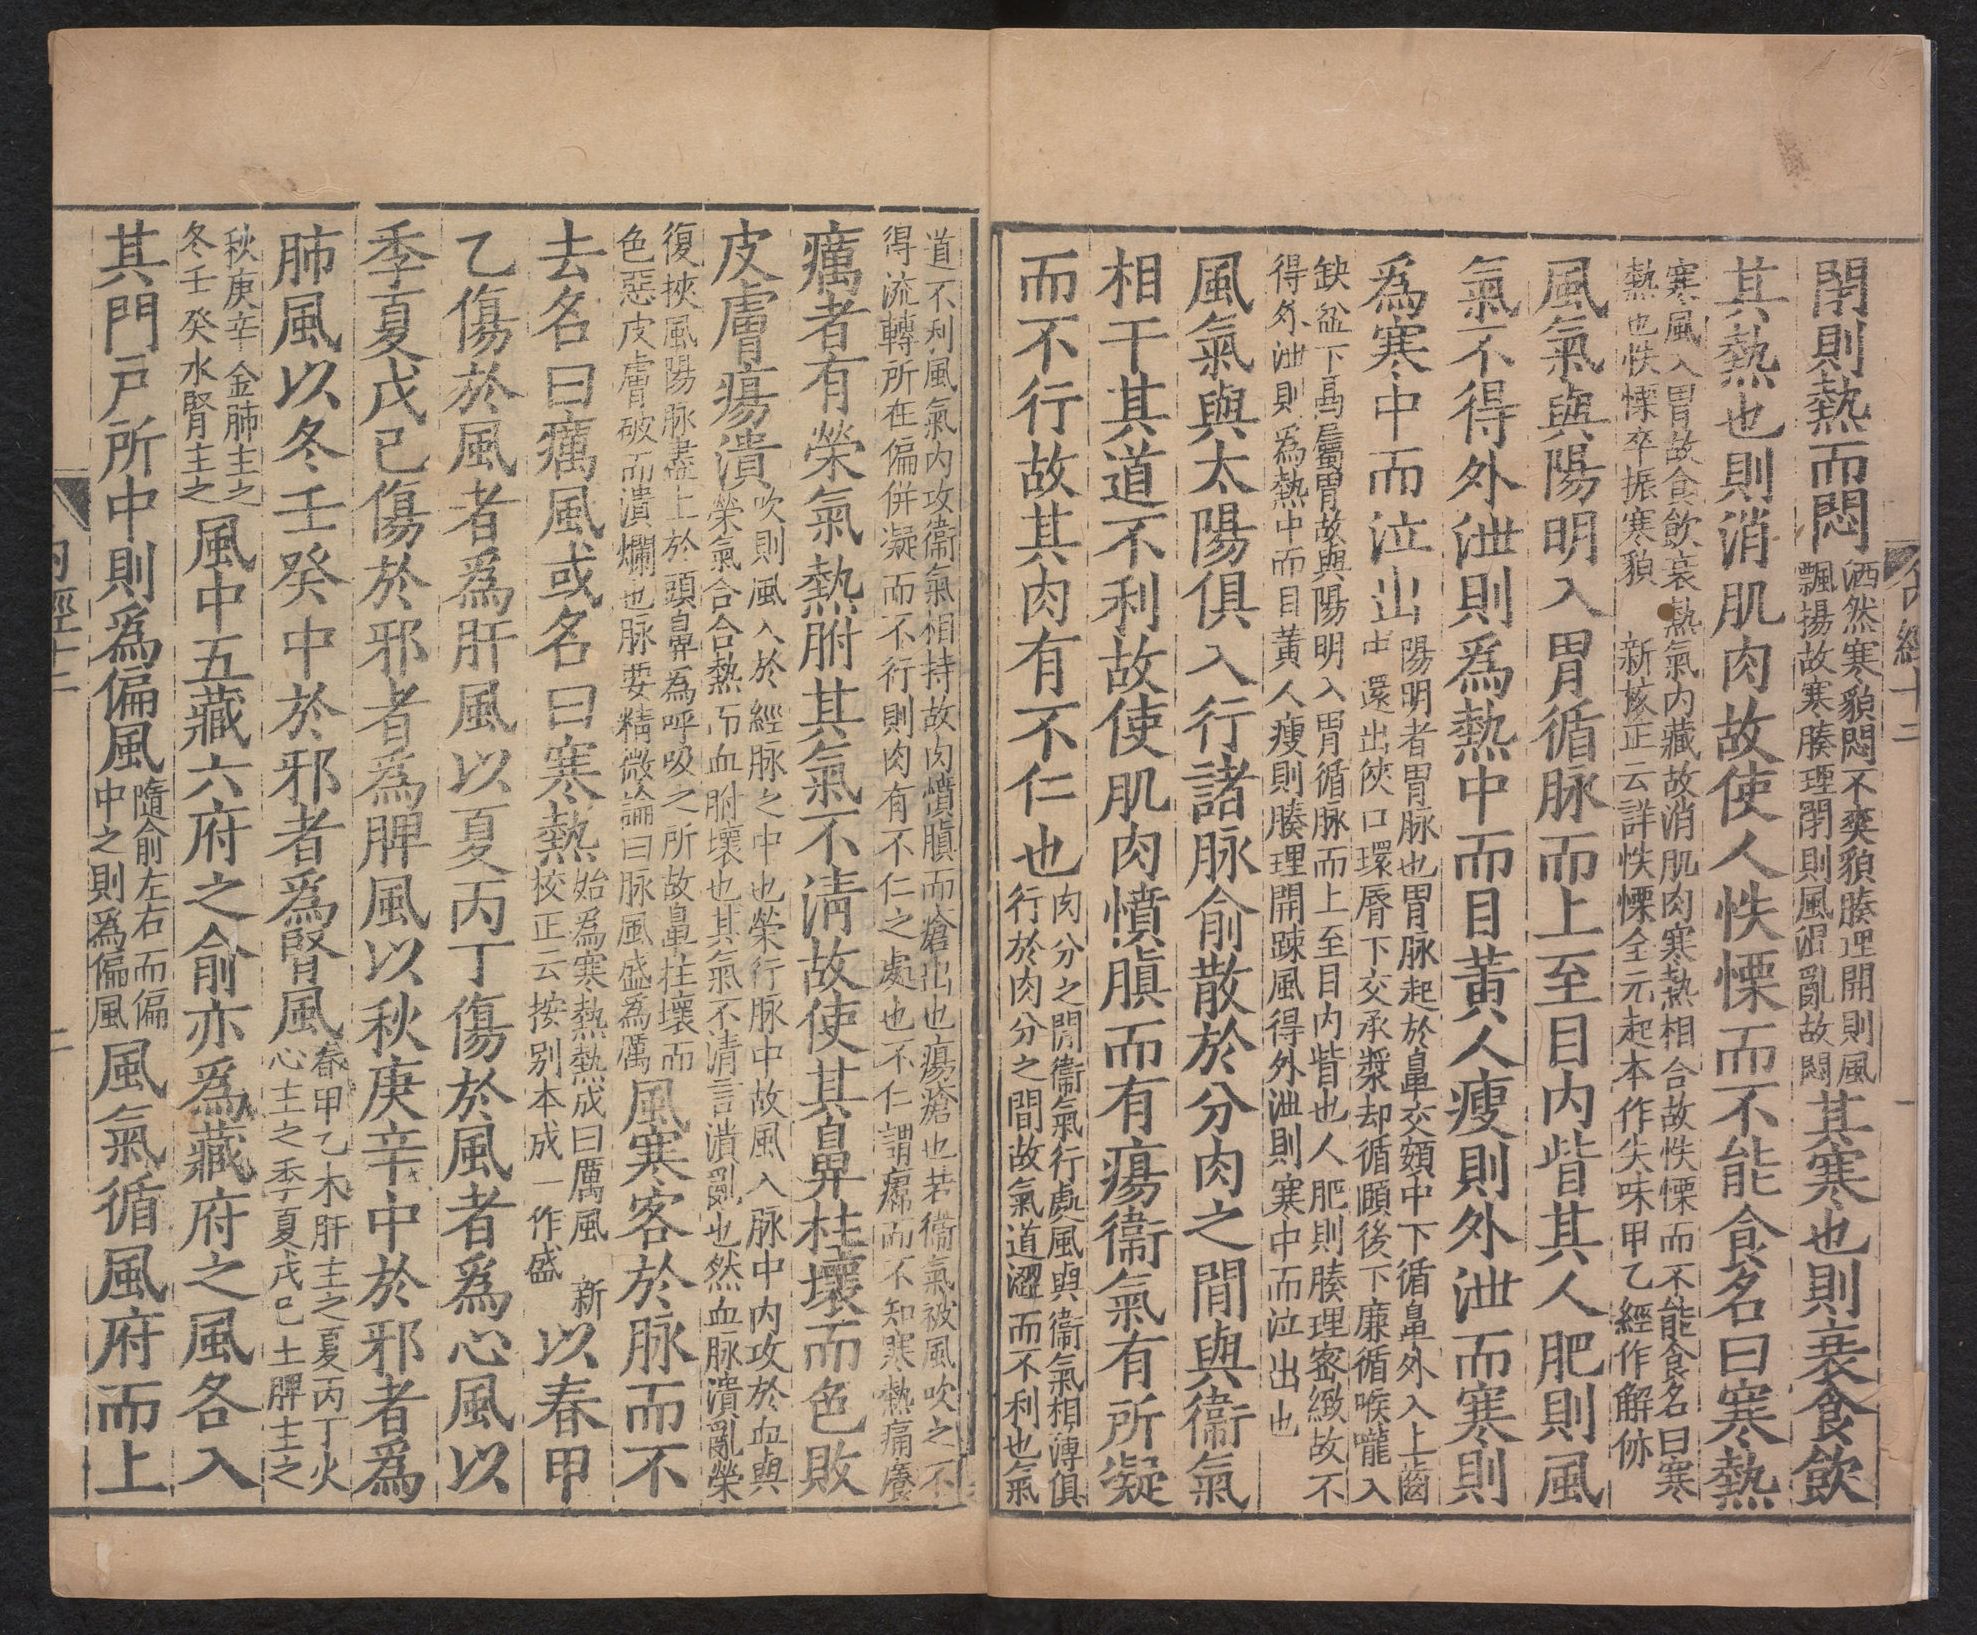 閉則熱而悶洒然寒貌悶不爽貌腠理開則風飄揚故寒腠理閉則風混亂故悶其寒也則衰食飲
其熱也則消肌肉故使人怢慄而不能食名曰寒熱
寒風入胃故食飲衰熱氣内藏故消肌肉寒熱相合故怢慄而不能食名曰寒
熱也怢慄卒振寒貌 新校正云詳怢慄全元起本作失味甲乙經作解㑊
風氣與陽明入胃循脉而上至目内眥其人肥則風
氣不得外泄則爲熱中而目黃人瘦則外泄而寒則
爲寒中而泣出陽明者胃脉也胃脉起於鼻交頞中下循鼻外入上齒中還出俠口環脣下交承漿却循頤後下廉循喉嚨入
缺盆下鬲屬胃故與陽明入胃循脉而上至目内眥也人肥則腠理密緻故不
得外泄則爲熱中而目黃人瘦則腠理開踈風得外泄則寒中而泣出也
風氣與太陽俱入行諸脉俞散於分肉之閒與衞氣
相干其道不利故使肌肉憤䐜而有瘍衞氣有所凝
而不行故其肉有不仁也肉分之閒衞氣行處風與衞氣相薄俱行於肉分之間故氣道澀而不利也氣
道不利風氣内攻衞氣相持故肉憤䐜而瘡出也瘍瘡也若衞氣被風吹之不
得流轉所在偏併凝而不行則肉有不仁之處也不仁謂㾪而不知寒熱痛癢
癘者有榮氣熱胕其氣不清故使其鼻柱壞而色敗
皮膚瘍潰吹則風入於經脉之中也榮行脉中故風入脉中内攻於血與榮氣合合熱而血胕壞也其氣不清言潰亂也然血脉潰亂榮
復挾風陽脉盡上於頭鼻爲呼吸之所故鼻柱壞而色惡皮膚破而潰爛也脉要精微論曰脉風盛爲厲風寒客於脉而不
去名曰癘風或名曰寒熱始爲寒熱熱成曰厲風 新校正云按别本成一作盛以春甲
乙傷於風者爲肝風以夏丙丁傷於風者爲心風以
季夏戊己傷於邪者爲脾風以秋庚辛中於邪者爲
肺風以冬壬癸中於邪者爲腎風春甲乙木肝主之夏丙丁火心主之季夏戊己土脾主之
秋庚辛金肺主之冬壬癸水腎主之風中五藏六府之俞亦爲藏府之風各入
其門戶所中則爲偏風隨俞左右而偏中之則爲偏風風氣循風府而上
内經十二